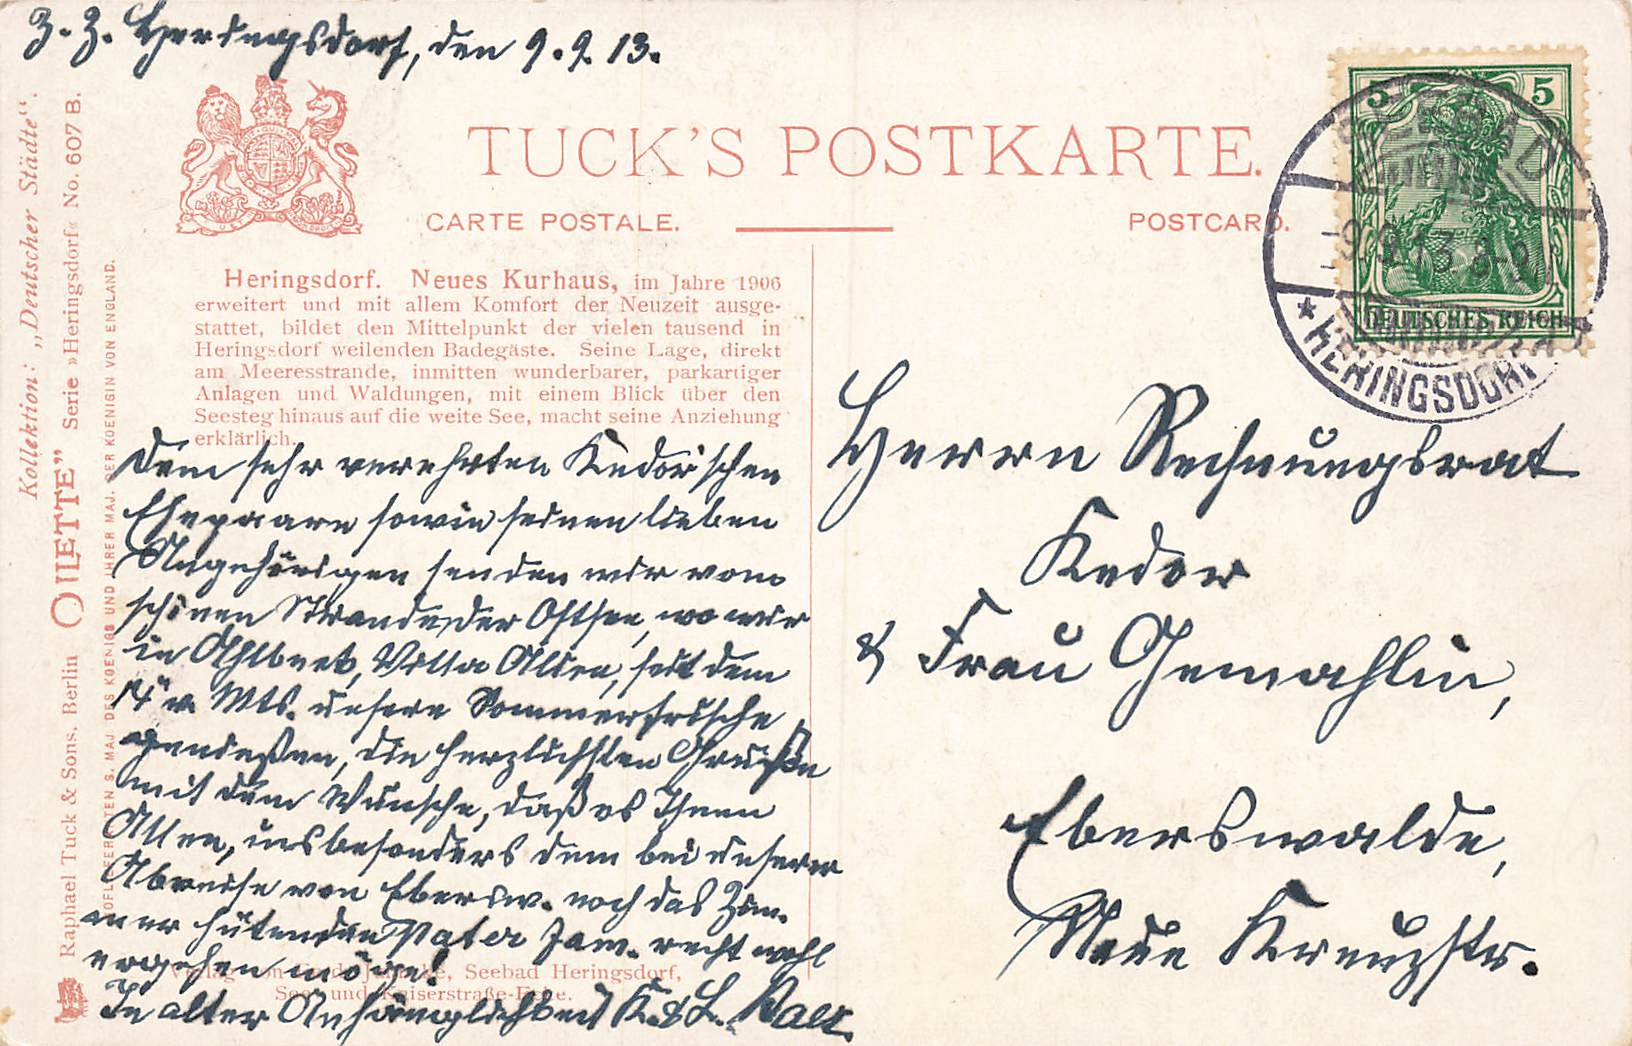 Z. Z. Heringsdorf, den 9. 9. 13.
TUCK'S POSTKARTE.
CARTE POSTALE.
POSTCARD.
Kollektion: „Deutscher Städte“.
Raphael Tuck & Sons, Berlin "OILETTE" Serie »Heringsdorf« No. 607 B.
HOFLIEFERANTEN S. MAJ. DES KOENIGS UND IHRER MAJ. DER KOENIGIN VON ENGLAND.
Heringsdorf. Neues Kurhaus, im Jahre 1906
erweitert und mit allem Komfort der Neuzeit ausge-
stattet, bildet den Mittelpunkt der vielen tausend in
Heringsdorf weilenden Badegäste. Seine Lage, direkt
am Meeresstrande, inmitten wunderbarer, parkartiger
Anlagen und Waldungen, mit einem Blick über den
Seesteg hinaus auf die weite See, macht seine Anziehung
erklärlich.
Dem sehr verehrten Kedor'schen
Ehepaare sowie seinen lieben
Angehörigen senden wir vom
schönen Strande der Ostsee, wo wir
in Ahlbeck, Villa Alice, seit dem
14 v. Mts. unsere Sommerfrische
genießen, die herzlichsten Grüße
mit dem Wunsche, daß es Ihnen
Allen, insbesonders dem bei unserer
Abreise von Ebersw. noch das Zim-
mer hütenden Vater Jam. recht wohl
ergehen möge!
In alter Anhänglichkeit K. & L.
Verlag von Jahnke, Seebad Heringsdorf,
See- und Kaiserstraße-Ecke.
5 5
DEUTSCHES REICH
SEEBAD
-9.9.13.
* HERINGSDORF
Herrn Rechnungsrat
Kedor
& Frau Gemahlin,
Eberswalde,
Neue Kreuzstr.